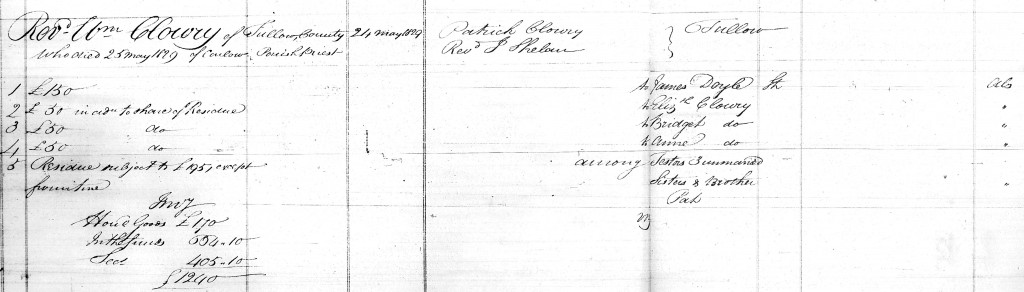 Revd. Wm Clowry of Tullow, County 24 May 1829 Patrick Clowry } Tullow
Who died 25 May 1829 of Carlow, Parish Priest Revd. P Phelan
1 £150 to James Doyle Abs
2 £ 50 in adn. to share of Residue to Elizth. Clowry "
3 £50 do to Bridget do "
4 £50 do to Anne do "
5 Residue subject to £195, except among Testors 3 unmarried
furniture Sisters & Brother "
Invy Pat
Houd Goods £170
In the funds 664 " 10
405 " 10
£1240